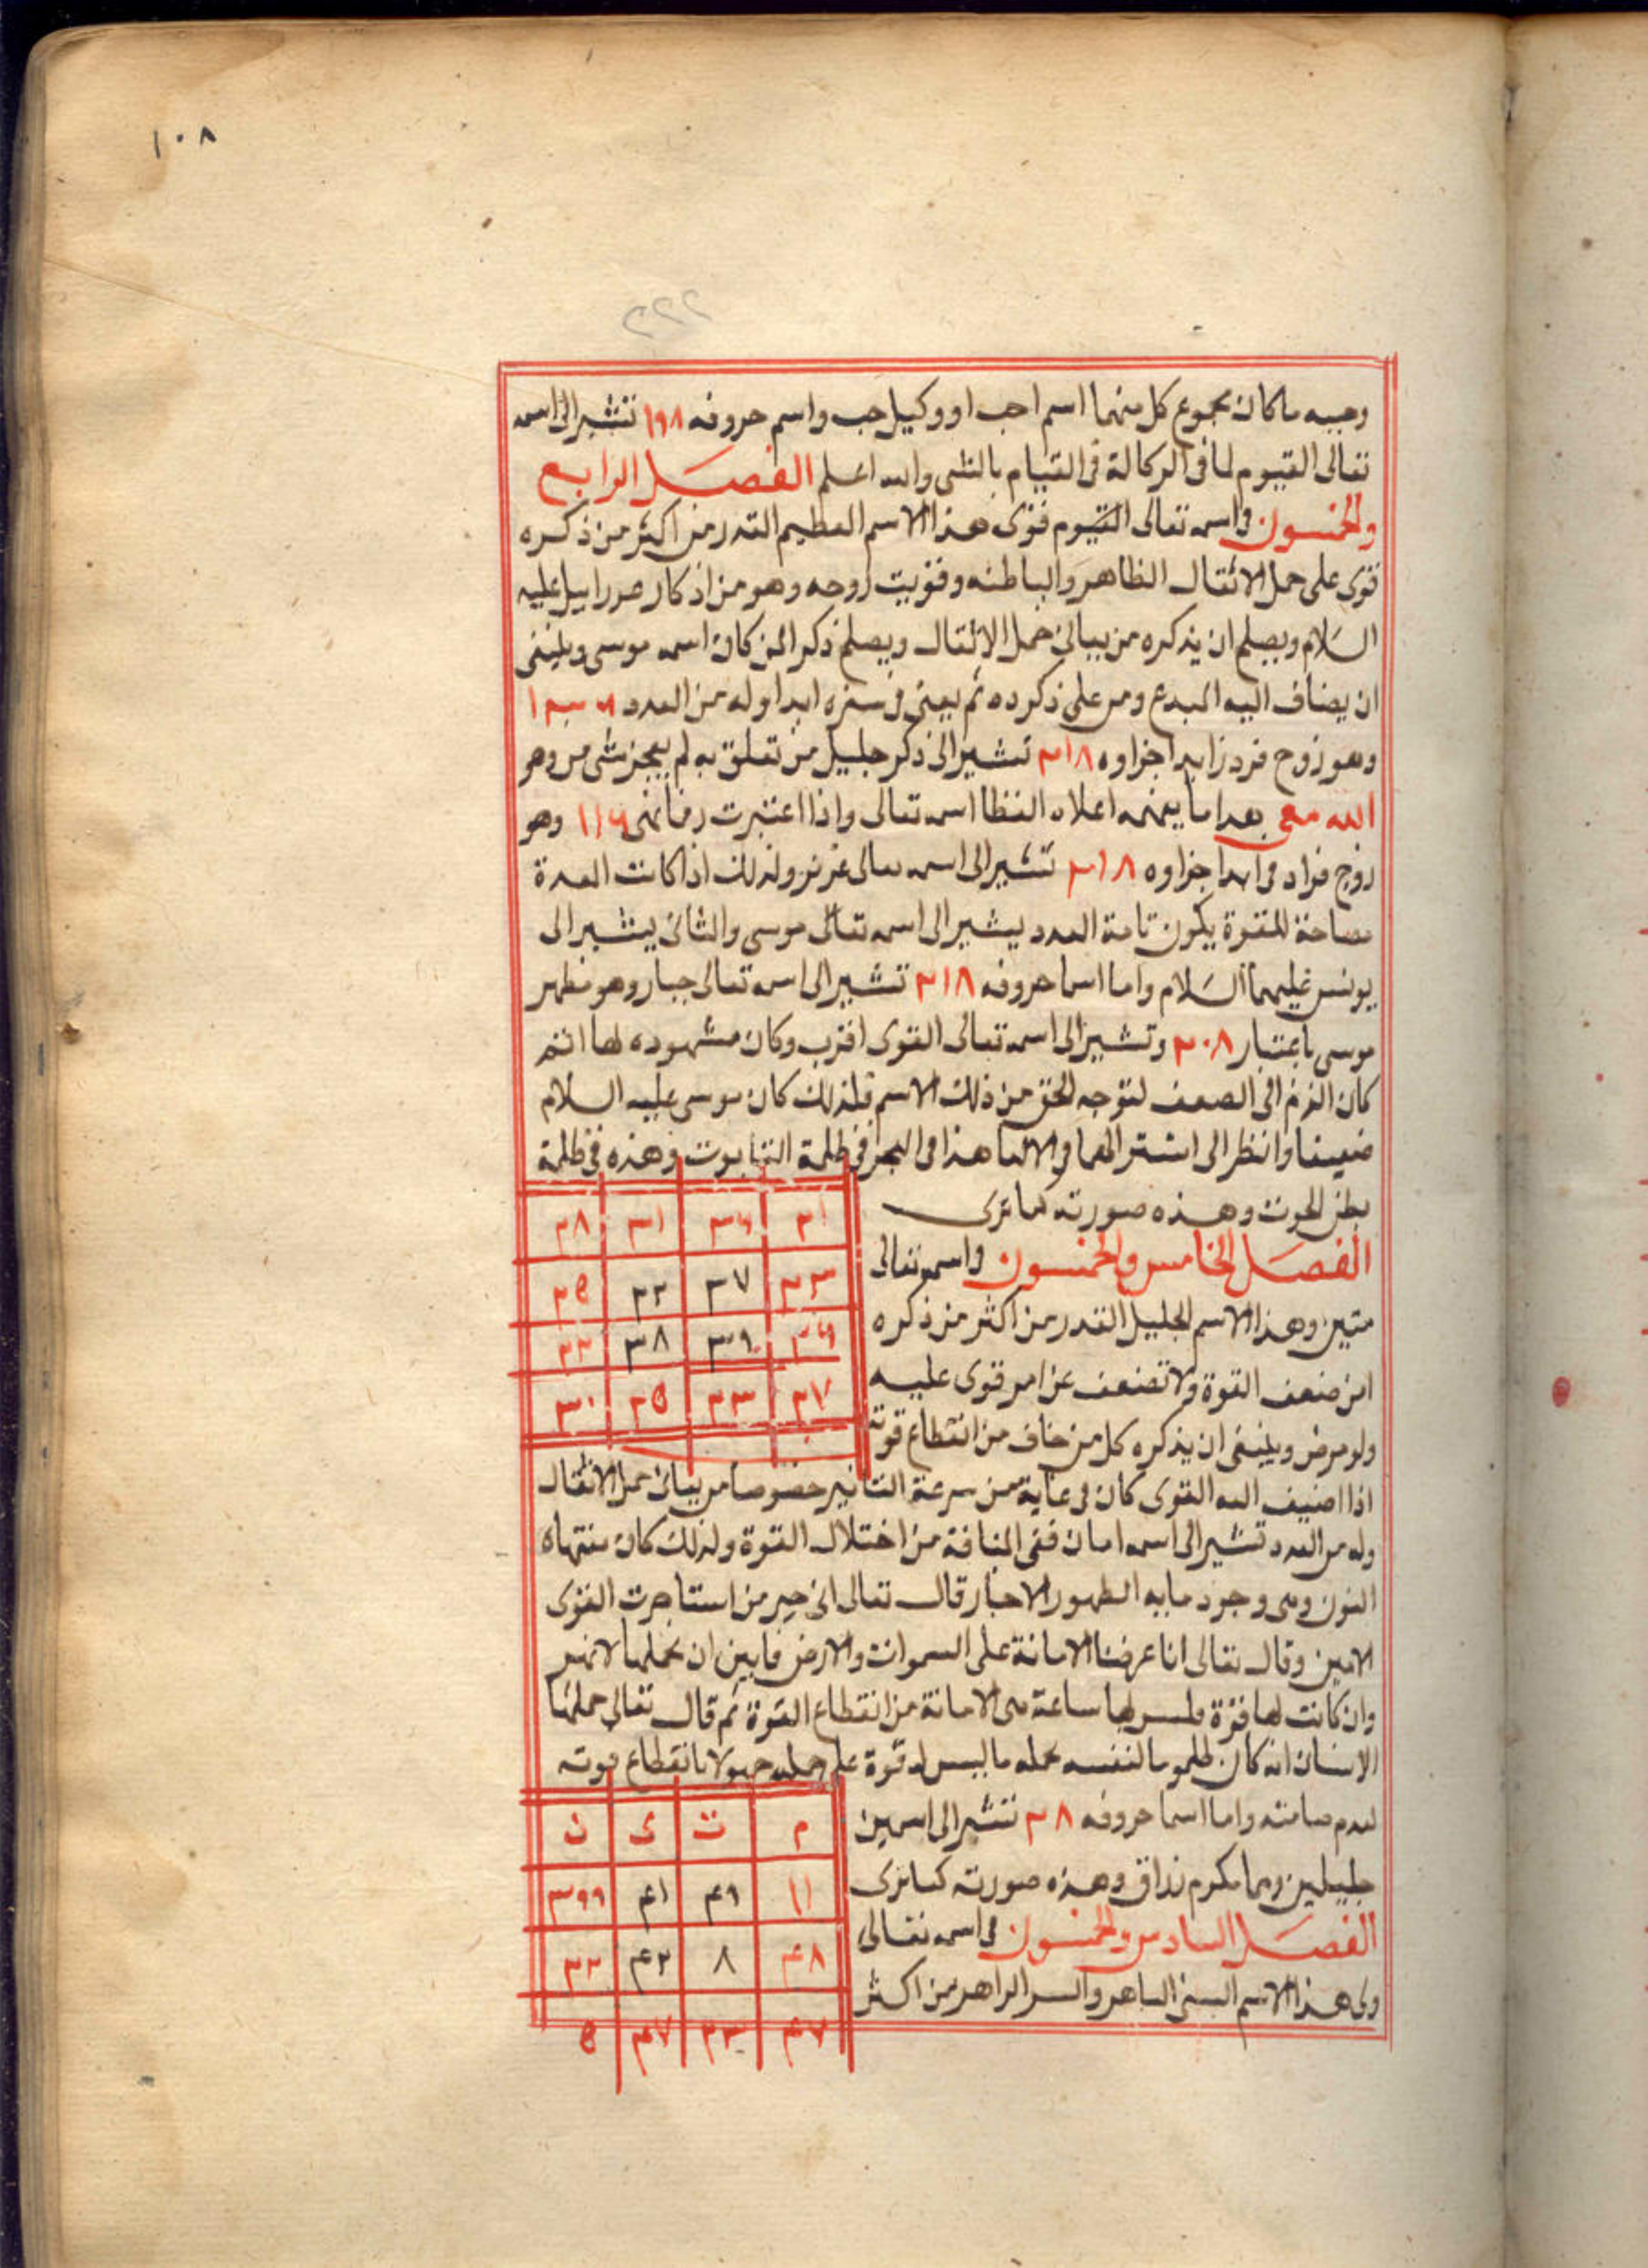 ١٠٨
٢٢٢
وحبيه ما كان مجموع كل منهما اسم احب او وكيل حب واسم حروفه ١٩٨ تشير الى اسمه
تعالى القيوم لما فى الوكالة فى القيام بالشى والله اعلم الفصل الرابع
والخمسون فى اسمه تعالى القيوم قوى هذا الاسم العظيم القدر من اكثر من ذكره
قوى على حمل الاثقال الظاهر والباطنه وقويت روحه وهو من اذكار عزراييل عليه
السلام ويصلح ان يذكره من يبالى حمل الاثقال ويصلح ذكر المن كان اسمه موسى وينبغى
ان يضاف اليه المبدع ومن على ذكره ثم يعيى فى سيره ابدا وله من العدد
وهو زوج فرد زايد اجزاوه ٢١٨ تشير الى ذكر جليل من تعلق به لم يعجز شى من وهو
الله مع بعد ما يعنمه اعلاه لفظا اسمه تعالى واذا اعتبرت رفانهى ١١٦ وهو
زوج فراد فى ابدا جزاوه ٢١٨ تشير الى اسمه تعالى عزيز ولذلك اذا كانت العدة
مصاحة للقوة يكون تامة العدد يشير الى اسمه تعالى موسى والثانى يشير الى
يونس عليهما السلام واما اسما حروفه ٢١٨ تشير الى اسمه تعالى جبار وهو مظهر
موسى باعتبار ٣٠٨ وتشير الى اسمه تعالى القوى اقرب وكان مشهوده لها انتم
كان الفرم الى الضعف لتوجه الحق من ذلك الاسم فلذلك كان موسى عليه السلام
ضعيفا وانظر الى اشتراكهما فى الالما هذا فى البحر فى ظلمة التابوت وهذه فى ظلمة
بطن الحوت وهذه صورته كما ترى
٢١ ٣٤ ٣١ ٢٨
٣٣ ٣٧ ٢٢ ٢٥
٣٦ ٣٩ ٣٨ ٢٣
٢٧ ٣٣ ٢٥ ٣٠
الفصل الخامس والخمسون فى اسمه تعالى
متين وهذا الاسم الجليل القدر من اكثر من ذكره
امن ضعف القوة ولا تضعف عن امر قوى عليه
ولو مرض وينبغى ان يذكره كل من خاف من انقطاع قوته
اذا اضيف اليه القوى كان فى غاية من سرعة التاثير خصوصا من يبالى حمل الاثقال
وله من العدد تشير الى اسمه امان ففى المنافة من اختلال القوة ولذلك كان منتهاه
النون وهى وجود ما به الظهور الاخبار قال تعالى ان خير من استاجرت القوى
الامين وقال تعالى انا عرضنا الامانة على السموات والارض فابين ان يحملنها لانهن
وان كانت لها قوة وليس لها ساعة هى الامانة من انقطاع القوة ثم قال تعالى حملها
الانسان انه كان ظلوما لنفسه بحمله ما ليس له قوة على حمله جهولا بانقطاع قوته
لعدم صامته واما اسما حروفه ٣٨ تشير الى اسمين
جليلين وهما مكرم رزاق وهذه صورته كما ترى
م ت ى ن
١١ ٤٩ ٤١ ٣٩٩
٤٨ ٨ ٤٢ ٣٢
٤٧ ٣٣ ٤٧ ٥
الفصل السادس والخمسون فى اسمه تعالى
ولى هذا الاسم السنى الباهر والسر الزاهر من اكثر